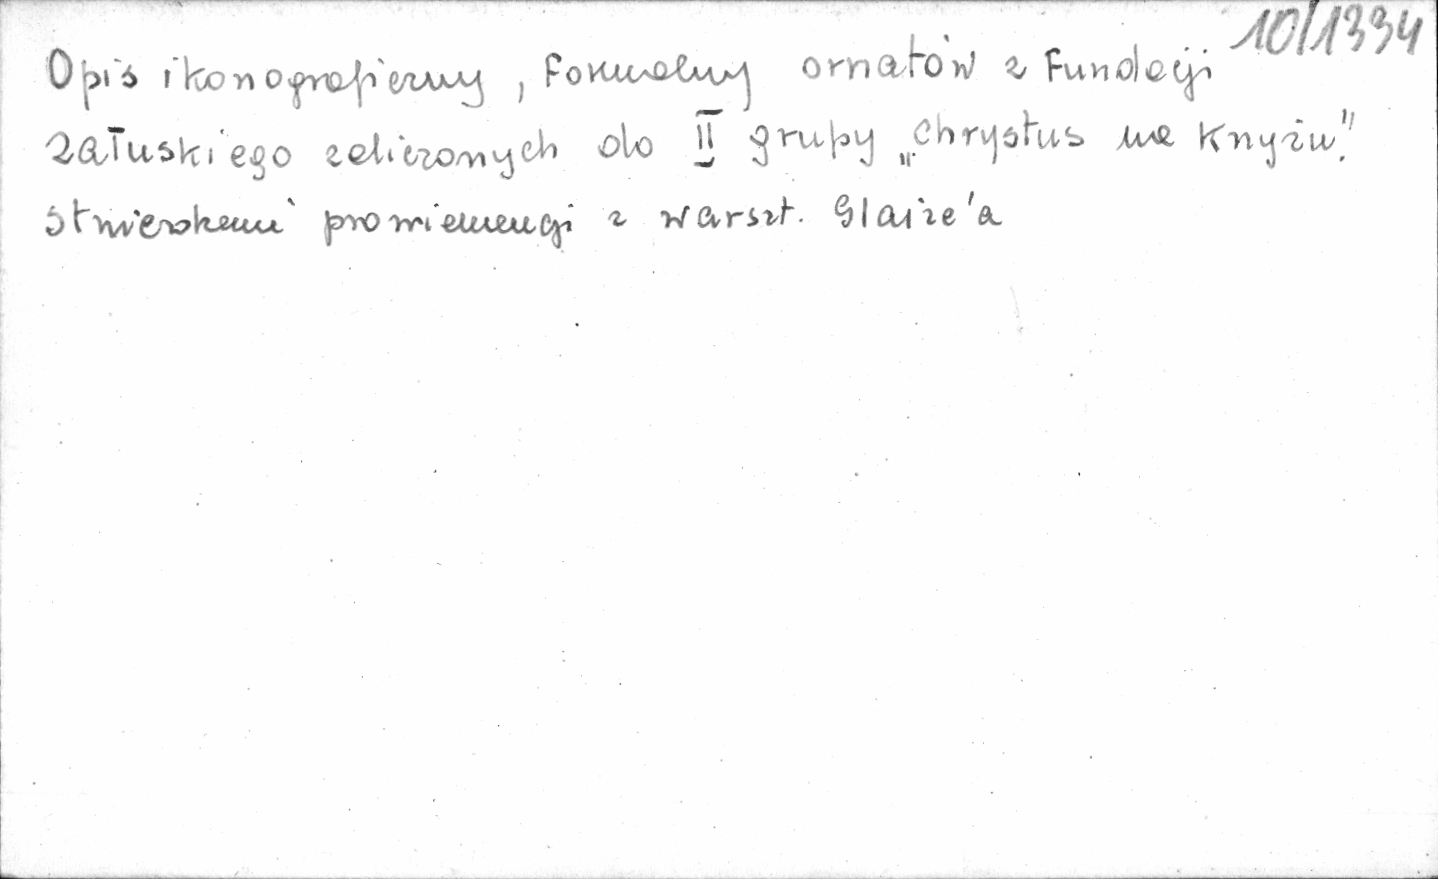 10/1334
Opis ikonograficzny, formalny ornatów z Fundacji
Załuskiego zaliczonych do II grupy „Chrystus na Krzyżu".
Stwierdzenie proweniencji z warszt. Glaize'a